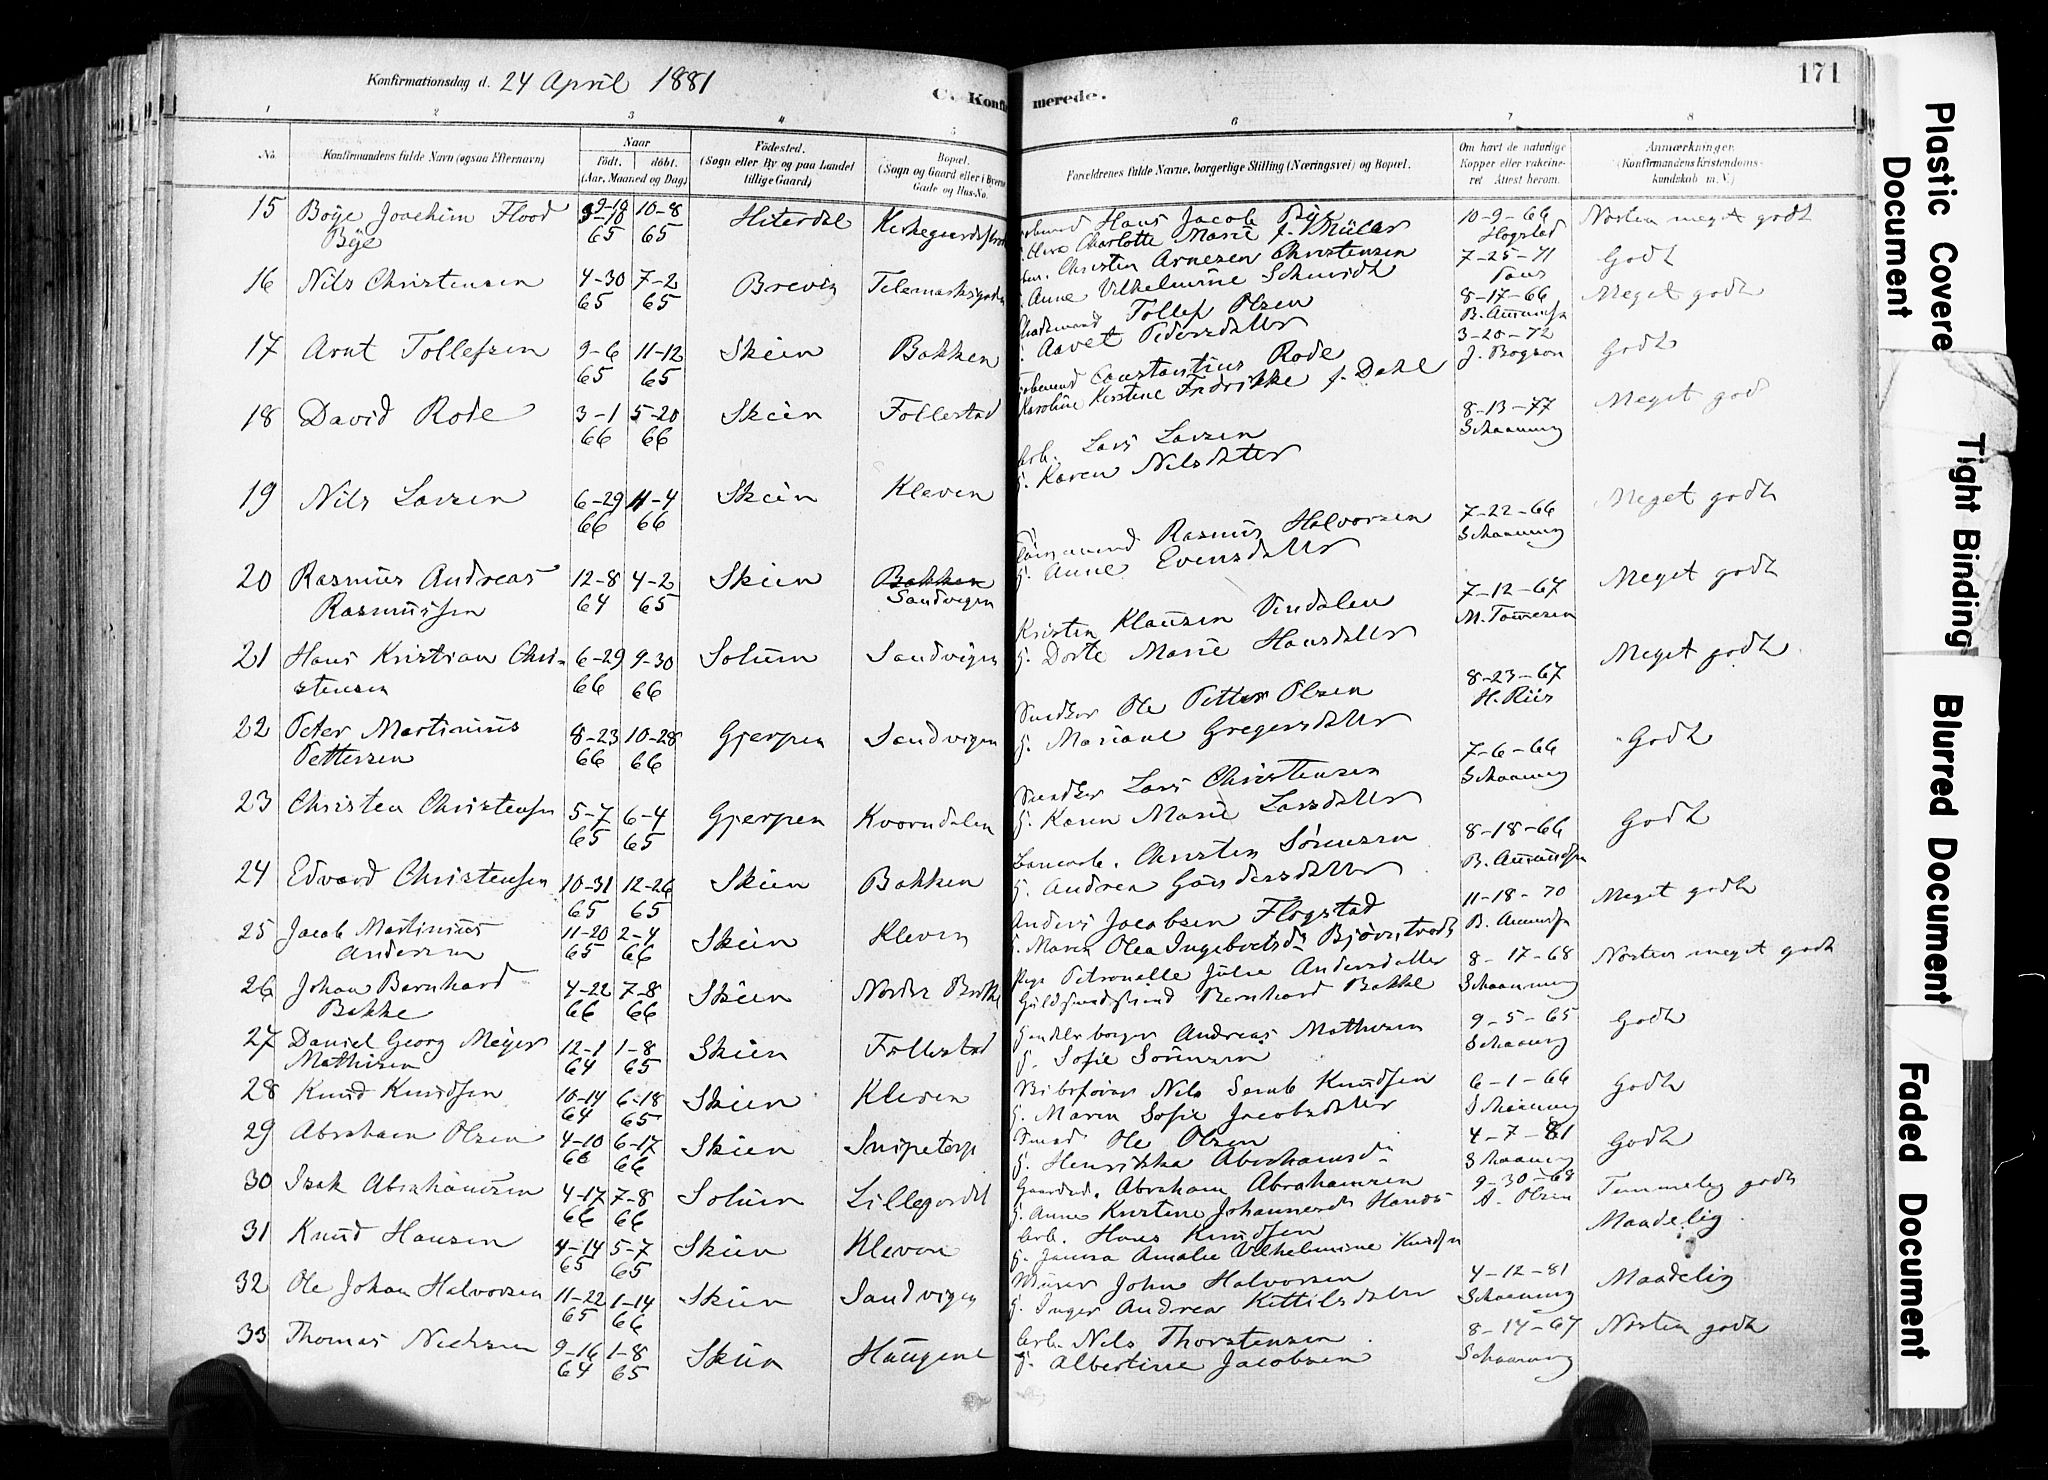 Konfirmationsdag d. 24 April 1881
C. Konfirmerede.
171
1 2 3 4 5 6 7 8
No.
Konfirmandens fulde Navn (ogsaa Efternavn)
Naar
Født. døbt.
(Aar, Maaned og Dag)
Fødested.
(Sogn eller By og paa Landet
tillige Gaard)
Bopæl.
(Sogn og Gaard eller i Byerne
Gade og Hus-No.
Forældrenes fulde Navne, borgerlige Stilling (Næringsvei) og Bopæl.
Om havt de naturlige
Kopper eller vaccine-
ret Attest herom.
Anmærkninger.
(Konfirmandens Kristendoms-
kundskab m. V.)
15 Boye Joachim Flood 10-8 Hiterdal Hans Jacob Bye 10-9-66 Næsten meget godt
Bye 65 65 Charlotte Marie f. Müller Hogstad
16 Nils Christensen 4-30 7-2 Brevik Christen Arnesen Christensen 7-25-71 Godt
65 65 Anne Vilhelmine Schmidt
17 Arnt Tollefsen 9-6 11-12 Skien Bakken Tollef Olsen 8-17-66 Meget godt
65 65 Pedersdatter B. Amundsn
18 David Rode 3-1 5-20 Skien Follestad Constantius Rode 3-20-72 Godt
66 66 Karoline Kirstine Fredrikke f. Dahl
19 Nils Larsen 6-29 11-4 Skien Kleven Arb. Lars Larsen 8-13-77 Meget god
66 66 H. Karen Nilsdatter Schaanning
20 Rasmus Andreas 12-8 4-2 Skien Bakken Rasmus Halvorsen 7-22-66 Meget godt
Rasmussen 64 65 Sandvigen H. Anne Evensdatter Schaanning
21 Hans Kristian Chri- 6-29 9-30 Solum Sandvigen Kristen Klausen Vindalen 7-12-67 Meget godt
stensen 66 66 H. Dorte Marie Hansdatter
22 Peter Martinius 8-23 10-28 Gjerpen Sandvigen Snedker Ole Petter Olsen 8-23-67 Meget godt
Pettersen 66 66 H. Mariane Gregersdatter H. Riis
23 Christen Christensen 5-7 6-4 Gjerpen Kvorndalen Snedker Lars Christensen 7-6-66 Godt
65 65 H. Karen Marie Larsdatter Schaanning
24 Edvard Christensen 10-31 12-26 Skien Bakken Christen Sørensen 8-18-66 Godt
65 65 H. Andrea B. Amundsn
25 Jacob Martinius 11-20 2-4 Skien Kleven Anders Jacobsen Flogstad 11-18-70 Meget godt
Andersen 65 66 H. Maren Olea B. Amundsn
26 Johan Bernhard 4-22 7-8 Skien Pige Petronelle Julie Andersdatter 8-17-68 Næsten meget godt
Bakke 66 66 Bernhard Bakke Schaanning
27 Daniel Georg Meyer 12-1 1-8 Skien Follestad Andreas Mathisen 9-5-65 Godt
Mathisen 64 65 H. Sofie Sørensen Schaanning
28 Knud Knudsen 10-14 6-18 Skien Kleven Nils Knudsen 6-1-66 Godt
64 65 H. Maren Sofie Jacobsdatter Schaanning
29 Abraham Olsen 4-10 6-17 Skien Snipetorp Smed Ole Olsen 4-7-81 Godt
66 66 H. Henrikka Abrahamsd. Schaanning
30 Isak Abrahamsen 4-17 7-8 Solum Lillegordet Abraham Abrahamsen 9-30-68 Temmelig godt
66 66 H. Anne Kristine A. Olsen
31 Knud Hansen 4-14 5-7 Skien Kleven Arb. Hans Knudsen Maadelig
65 65 Amalie Vilhelmine Knudsn
32 Ole Johan Halvorsen 11-22 1-14 Skien Sandvigen Murer John Halvorsen 4-12-81 Maadelig
65 66 H. Inger Andrea Kittilsdatter Schaanning
33 Thomas Nielsen 9-16 1-8 Skien Haugene Arb. Nils Thorstensen 8-14-67 Næsten godt
64 65 H. Albertine Jacobsen Schaanning
Plastic Covere
Document
Tight Binding
Blurred Document
Faded Document